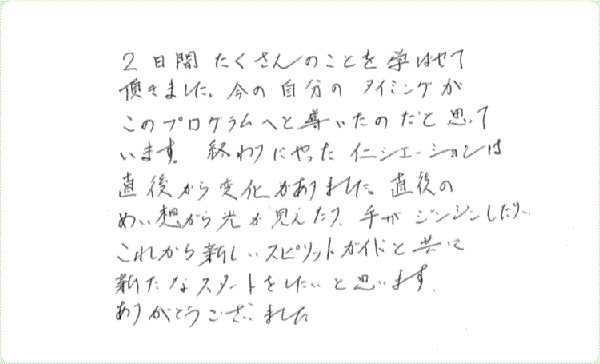 2日間たくさんのことを学ばせて
頂きました。今の自分のタイミングが
このプログラムへと導いたのだと思って
います。終わりにやったイニシエーションは
直後から変化がありました。直後の
めい想から光が見えたり、手がジンジンしたり、
これから新しいスピリットガイドと共に
新たなスタートをしたいと思います。
ありがとうございました